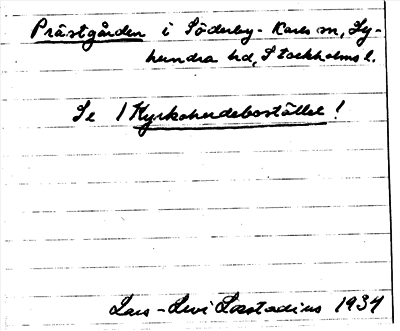 Prästgården i Söderby-Karls sn, Ly-
hundra hd, Stockholms l.
Se 1 Kyrkoherdebostället!
Lars-Levi Læstadius 1934